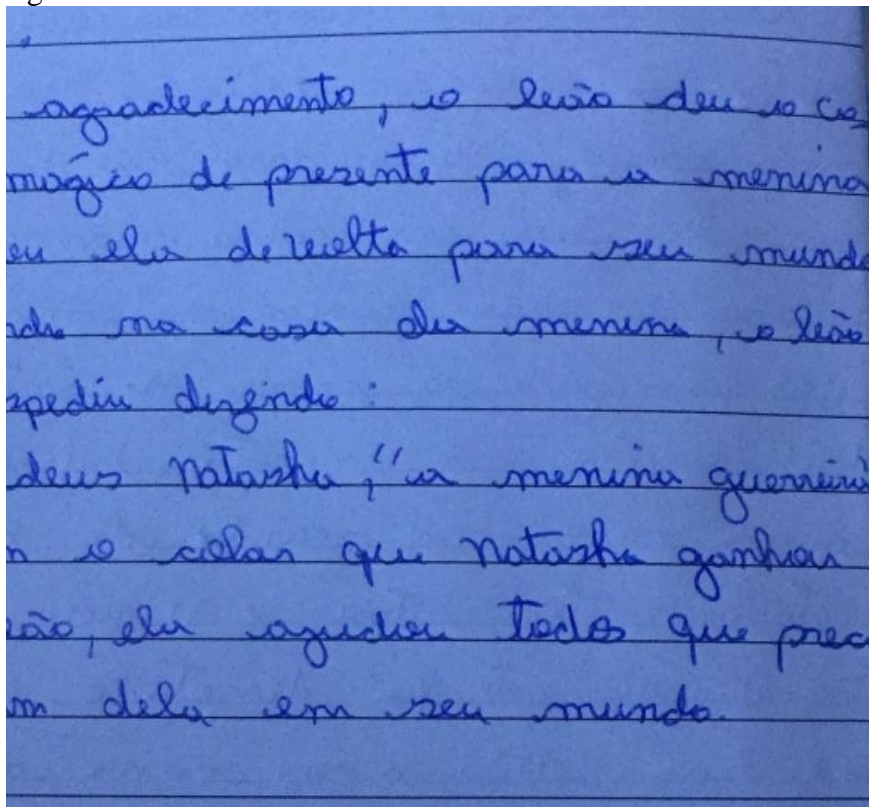 agradecimento, o leão deu o co
mágico de presente para a menina
eu ela de volta para seu mundo
ndo na casa da menina, o leão
spediu dizendo:
deus Natasha, "a menina guerreira
m o colar que Natasha ganhou
eão, ela ajudou todos que prec
m dela em seu mundo.